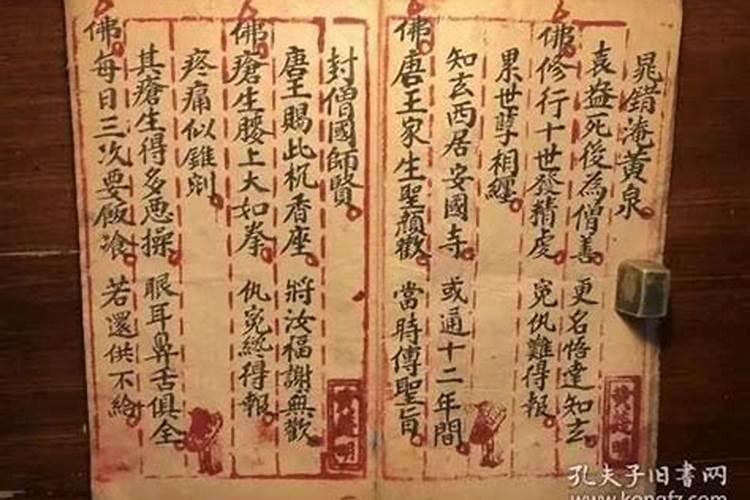 晁錯淹黄泉
袁益死後為僧善 更名悟達知玄
佛修行十世發精虔 寃仇難得報
累世孽相纏
知玄西居安國寺 或通十二年間
佛唐王家生聖顏歡 當時傳聖旨
封僧國師賢
唐王賜此杌香座 將汝福謝無歡
佛瘡生腰上大如拳 仇寃終得報
疼痛似錐剜
其瘡生得多惡操 眼耳鼻舌俱全
佛每日三次要飯飡 若還供不給
孔夫子旧书网